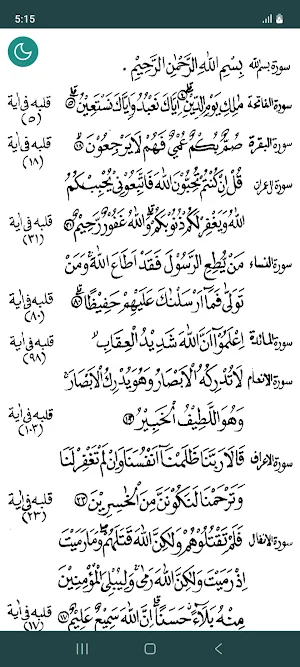 5:15
سورة بسم الله بِسْمِ اللهِ الرَّحْمٰنِ الرَّحِيْمِ .
سورة الفاتحة مٰلِكِ يَوْمِ الدِّيْنِ ۝٤ اِيَّاكَ نَعْبُدُ وَاِيَّاكَ نَسْتَعِيْنُ ۝٥ قلبه فى اٰية (٥)
سورة البقرة صُمٌّ بُكْمٌ عُمْيٌ فَهُمْ لَا يَرْجِعُوْنَ ۝١٨ قلبه فى اٰية (١٨)
سورة اٰل عمران قُلْ اِنْ كُنْتُمْ تُحِبُّوْنَ اللهَ فَاتَّبِعُوْنِيْ يُحْبِبْكُمُ
اللهُ وَيَغْفِرْ لَكُمْ ذُنُوْبَكُمْ ۗ وَاللهُ غَفُوْرٌ رَّحِيْمٌ ۝٣١ قلبه فى اٰية (٣١)
سورة النساء مَنْ يُّطِعِ الرَّسُوْلَ فَقَدْ اَطَاعَ اللهَ ۚ وَمَنْ
تَوَلّٰى فَمَآ اَرْسَلْنٰكَ عَلَيْهِمْ حَفِيْظًا ۝٨٠ قلبه فى اٰية (٨٠)
سورة المائدة اِعْلَمُوْٓا اَنَّ اللهَ شَدِيْدُ الْعِقَابِ قلبه فى اٰية (٩٨)
سورة الانعام لَا تُدْرِكُهُ الْاَبْصَارُ وَهُوَ يُدْرِكُ الْاَبْصَارَ ۚ
وَهُوَ اللَّطِيْفُ الْخَبِيْرُ ۝١٠٣ قلبه فى اٰية (١٠٣)
سورة الاعراف قَالَا رَبَّنَا ظَلَمْنَآ اَنْفُسَنَا وَاِنْ لَّمْ تَغْفِرْ لَنَا
وَتَرْحَمْنَا لَنَكُوْنَنَّ مِنَ الْخٰسِرِيْنَ ۝٢٣ قلبه فى اٰية (٢٣)
سورة الانفال فَلَمْ تَقْتُلُوْهُمْ وَلٰكِنَّ اللهَ قَتَلَهُمْ ۖ وَمَا رَمَيْتَ
اِذْ رَمَيْتَ وَلٰكِنَّ اللهَ رَمٰى ۚ وَلِيُبْلِيَ الْمُؤْمِنِيْنَ
مِنْهُ بَلَآءً حَسَنًا ۗ اِنَّ اللهَ سَمِيْعٌ عَلِيْمٌ ۝١٧ قلبه فى اٰية (١٧)